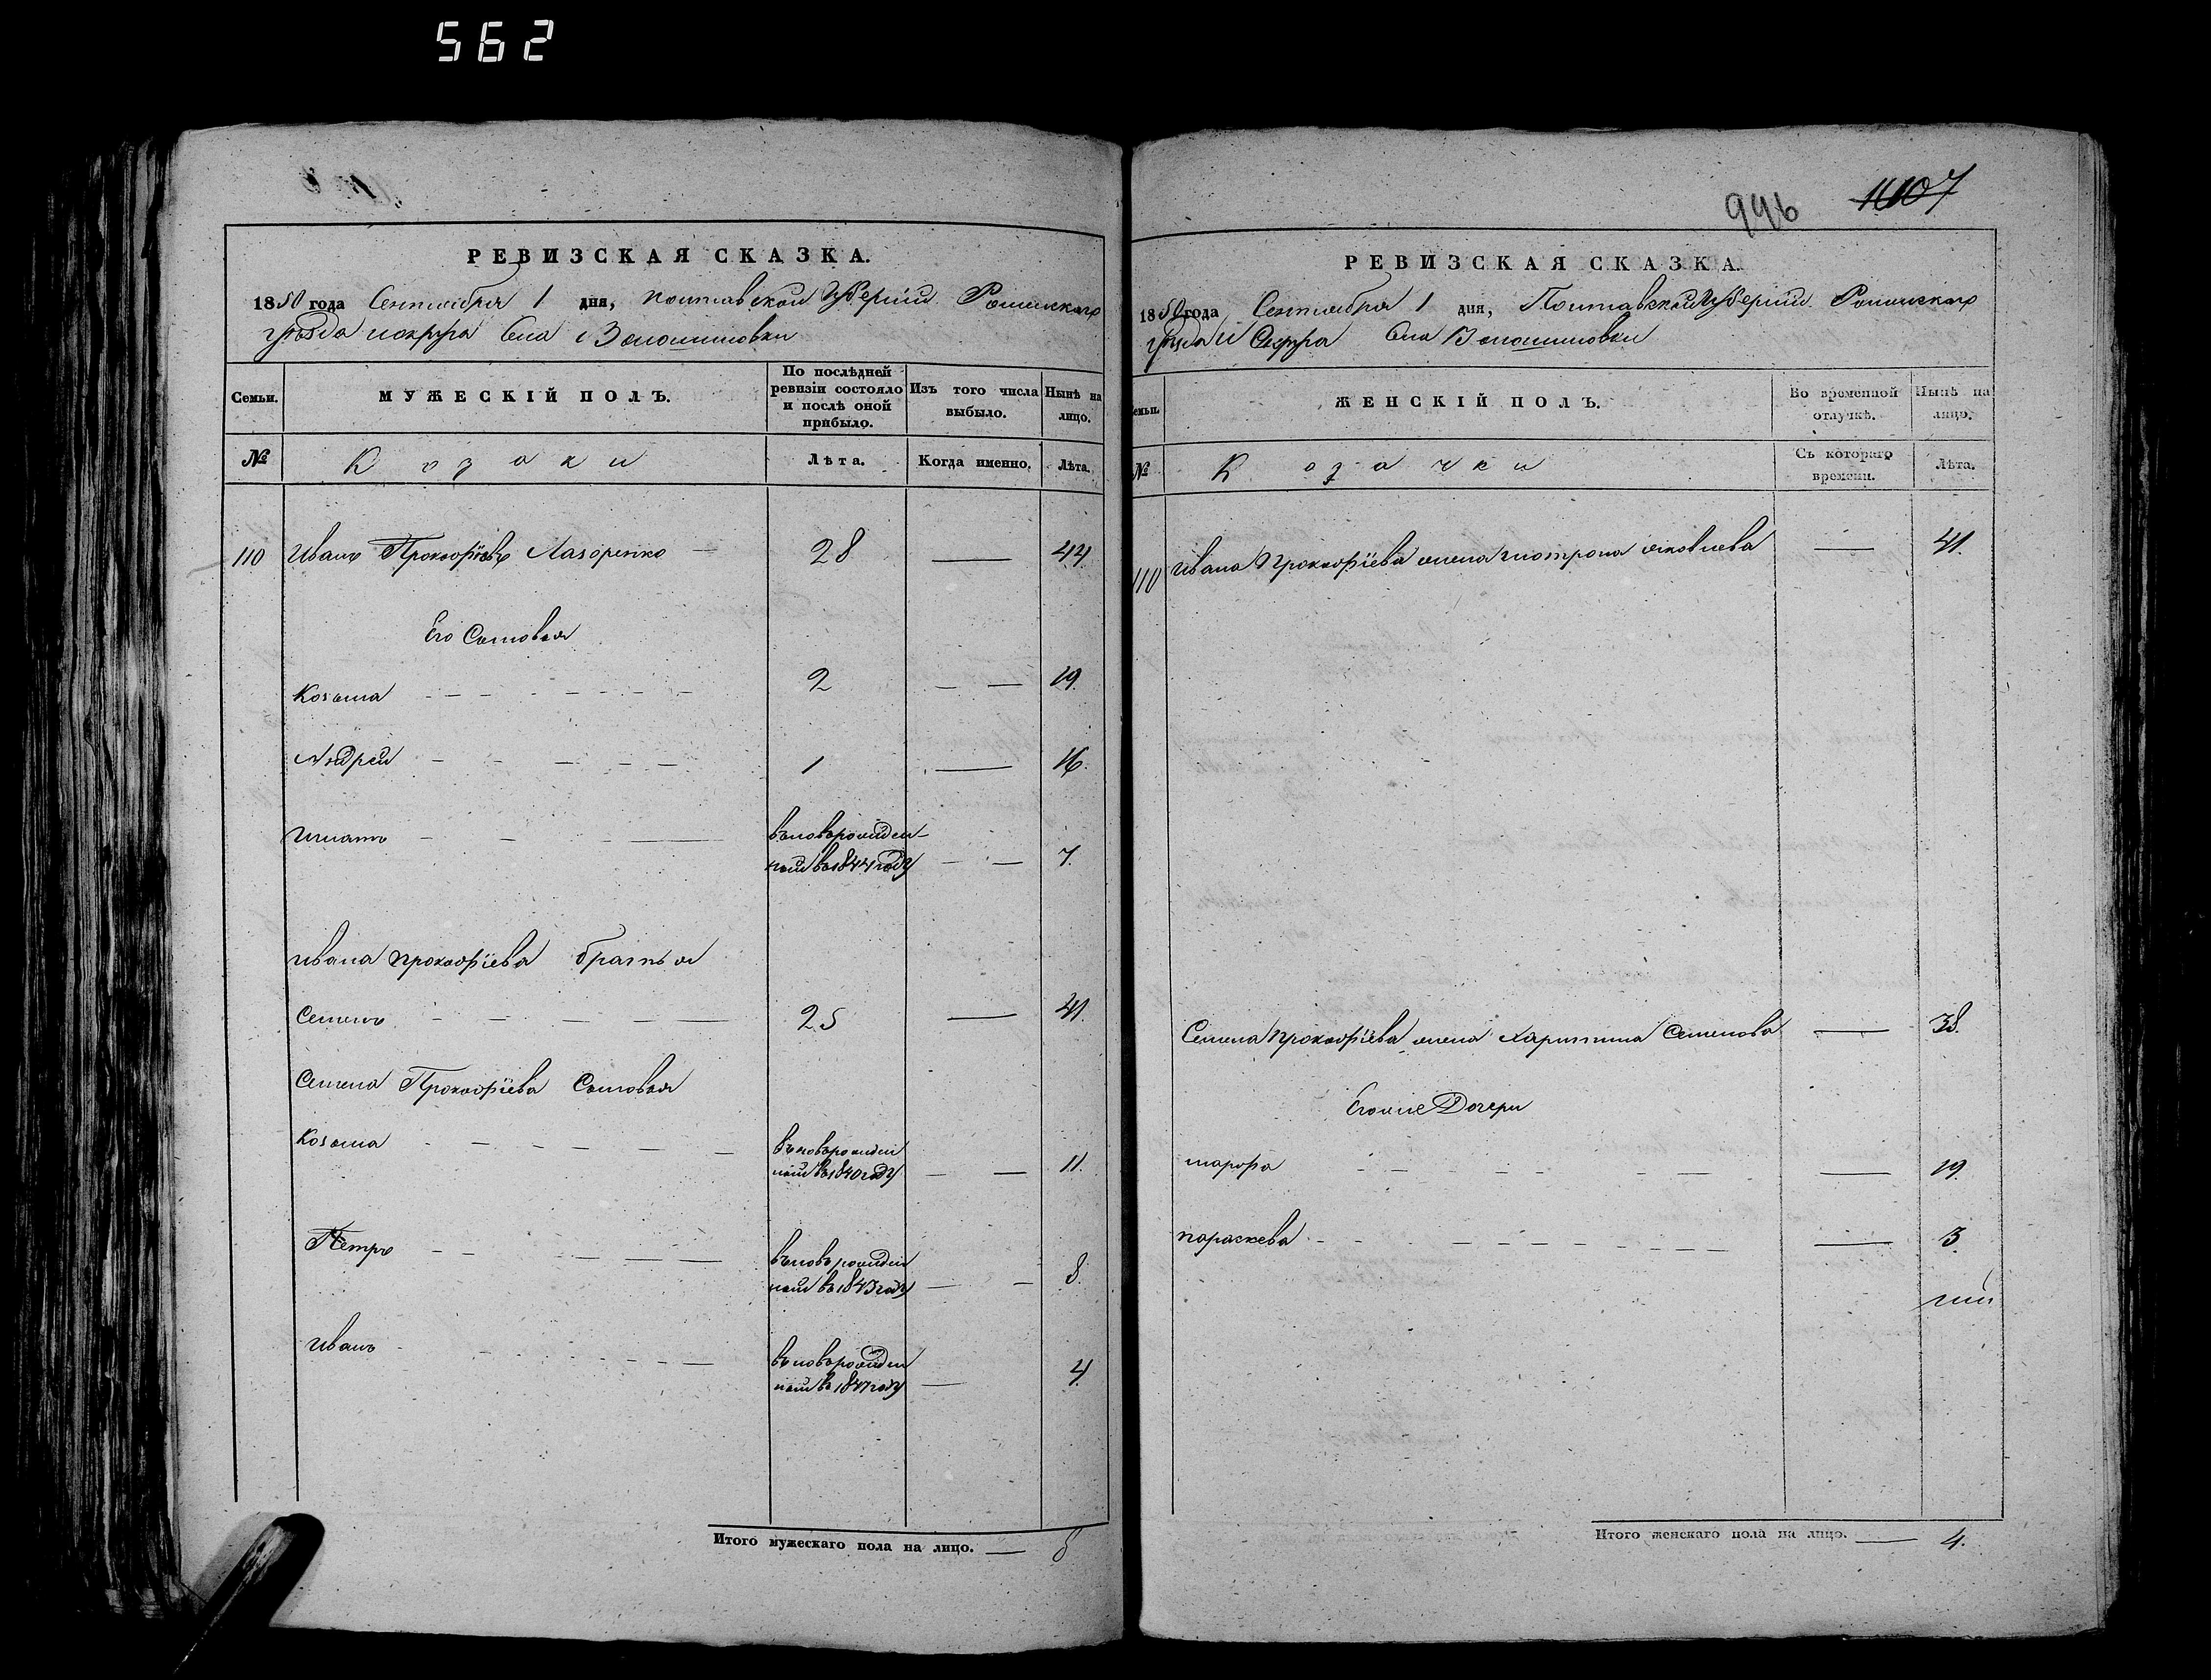 562
РЕВИЗСКАЯ СКАЗКА.
1850 года Сентября 1 дня, Полтавской Губернии Роменского
уезда и округа Села Волошиновки
Семьи.
МУЖЕСКІЙ ПОЛЪ.
По послѣдней ревизіи состояло и послѣ оной прибыло.
Изъ того числа выбыло.
Нынѣ на лицо.
№
Козаки
Лѣта.
Когда именно.
Лѣта.
110 Иванъ Прокофіевъ Лазоренко 28 44
Его Сыновья
Козьма 2 19.
Андрей 1 16.
Игнатъ въновърожден-
ный въ 1844 году 7.
Ивана Прокофіева братья
Семенъ 25 41
Семена Прокофіева Сыновья
Козьма въновърожден
ный въ 1840 году 11.
Петръ въновърожден
ный въ 1843 году 8.
Иванъ въновърожден
ный въ 1847 году 4.
Итого мужескаго пола на лицо. 8
996 1107
РЕВИЗСКАЯ СКАЗКА.
1850 года Сентября 1 дня, Полтавской Губернии Роменского
уезда и Округа Села Волошиновки
Семьи.
ЖЕНСКІЙ ПОЛЪ.
Во временной отлучкѣ.
Нынѣ на лицо.
№
Козачки
Съ котораго времени.
Лѣта.
110 Ивана Прокофіева жена Мотрона Яковлева 41.
Семена Прокофіева жена Харитина Семенова 38.
Егоже Дочери
Марфа 19.
Параскева 3.
Итого женскаго пола на лицо. 4.